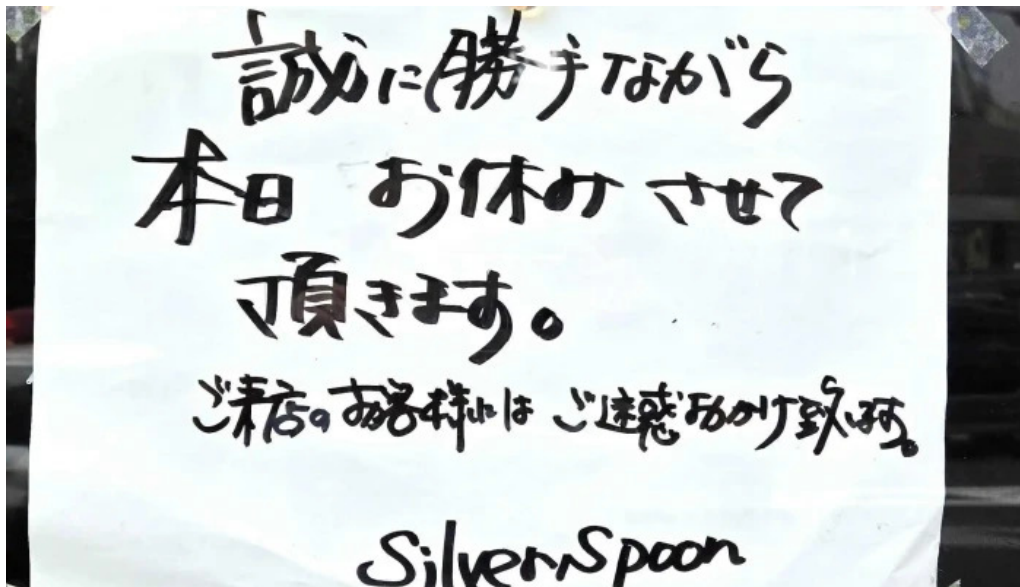 誠に勝手ながら
本日 お休み させて
頂きます。
ご来店のお客様には ご迷惑おかけ致します。
Silver Spoon